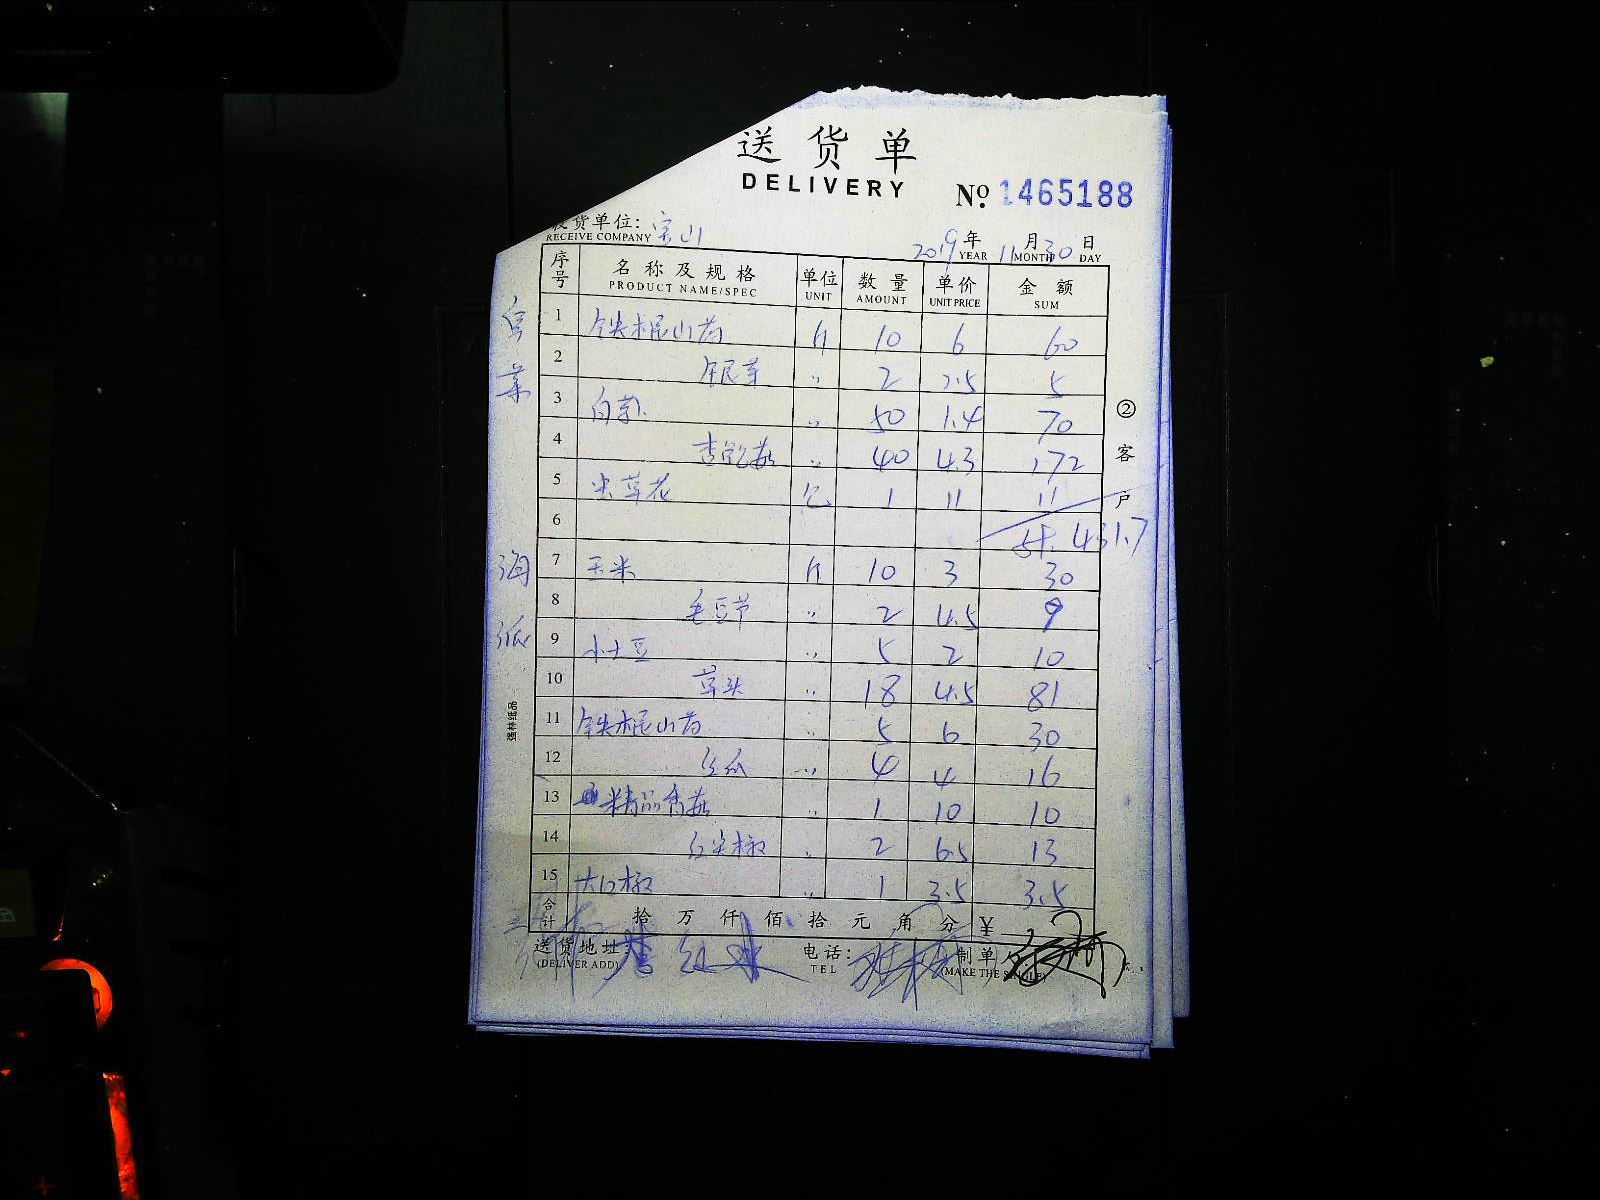 送货单
DELIVERY
№ 1465188
收货单位: 宝山
RECEIVE COMPANY
2019年 11月 30日
YEAR MONTH DAY
序号 名称及规格 单位 数量 单价 金额
PRODUCT NAME/SPEC UNIT AMOUNT UNIT PRICE SUM
1 铁棍山药 斤 10 6 60
2 银芽 〃 2 2.5 5
3 白菜 〃 50 1.4 70
4 杏鲍菇 〃 40 4.3 172
5 虫草花 公 1 11 11
6 计. 431.7
7 玉米 斤 10 3 30
8 毛豆节 〃 2 4.5 9
9 小土豆 〃 5 2 10
10 草头 〃 18 4.5 81
11 铁棍山药 〃 5 6 30
12 丝瓜 〃 4 4 16
13 精品香菇 〃 1 10 10
14 红尖椒 〃 2 6.5 13
15 大口椒 〃 1 3.5 3.5
合计 拾 万 仟 佰 拾 元 角 分 ¥
送货地址:
(DELIVER ADD)
电话:
TEL
制单人
(MAKE THE SINGLE)
②客户
强林纸品